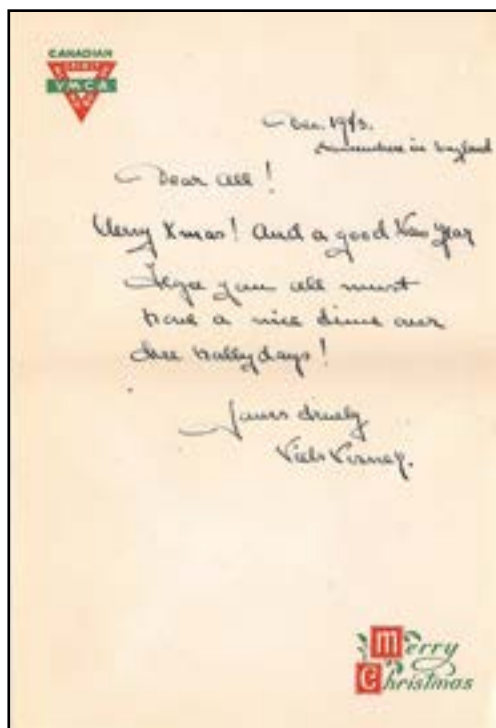 CANADIAN
YMCA
Dec. 1943.
Somewhere in England
Dear all!
Merry Xmas! And a good New Year
I hope you all must
have a nice time over
the hallydays!
Yours truely
Niels
Merry
Christmas